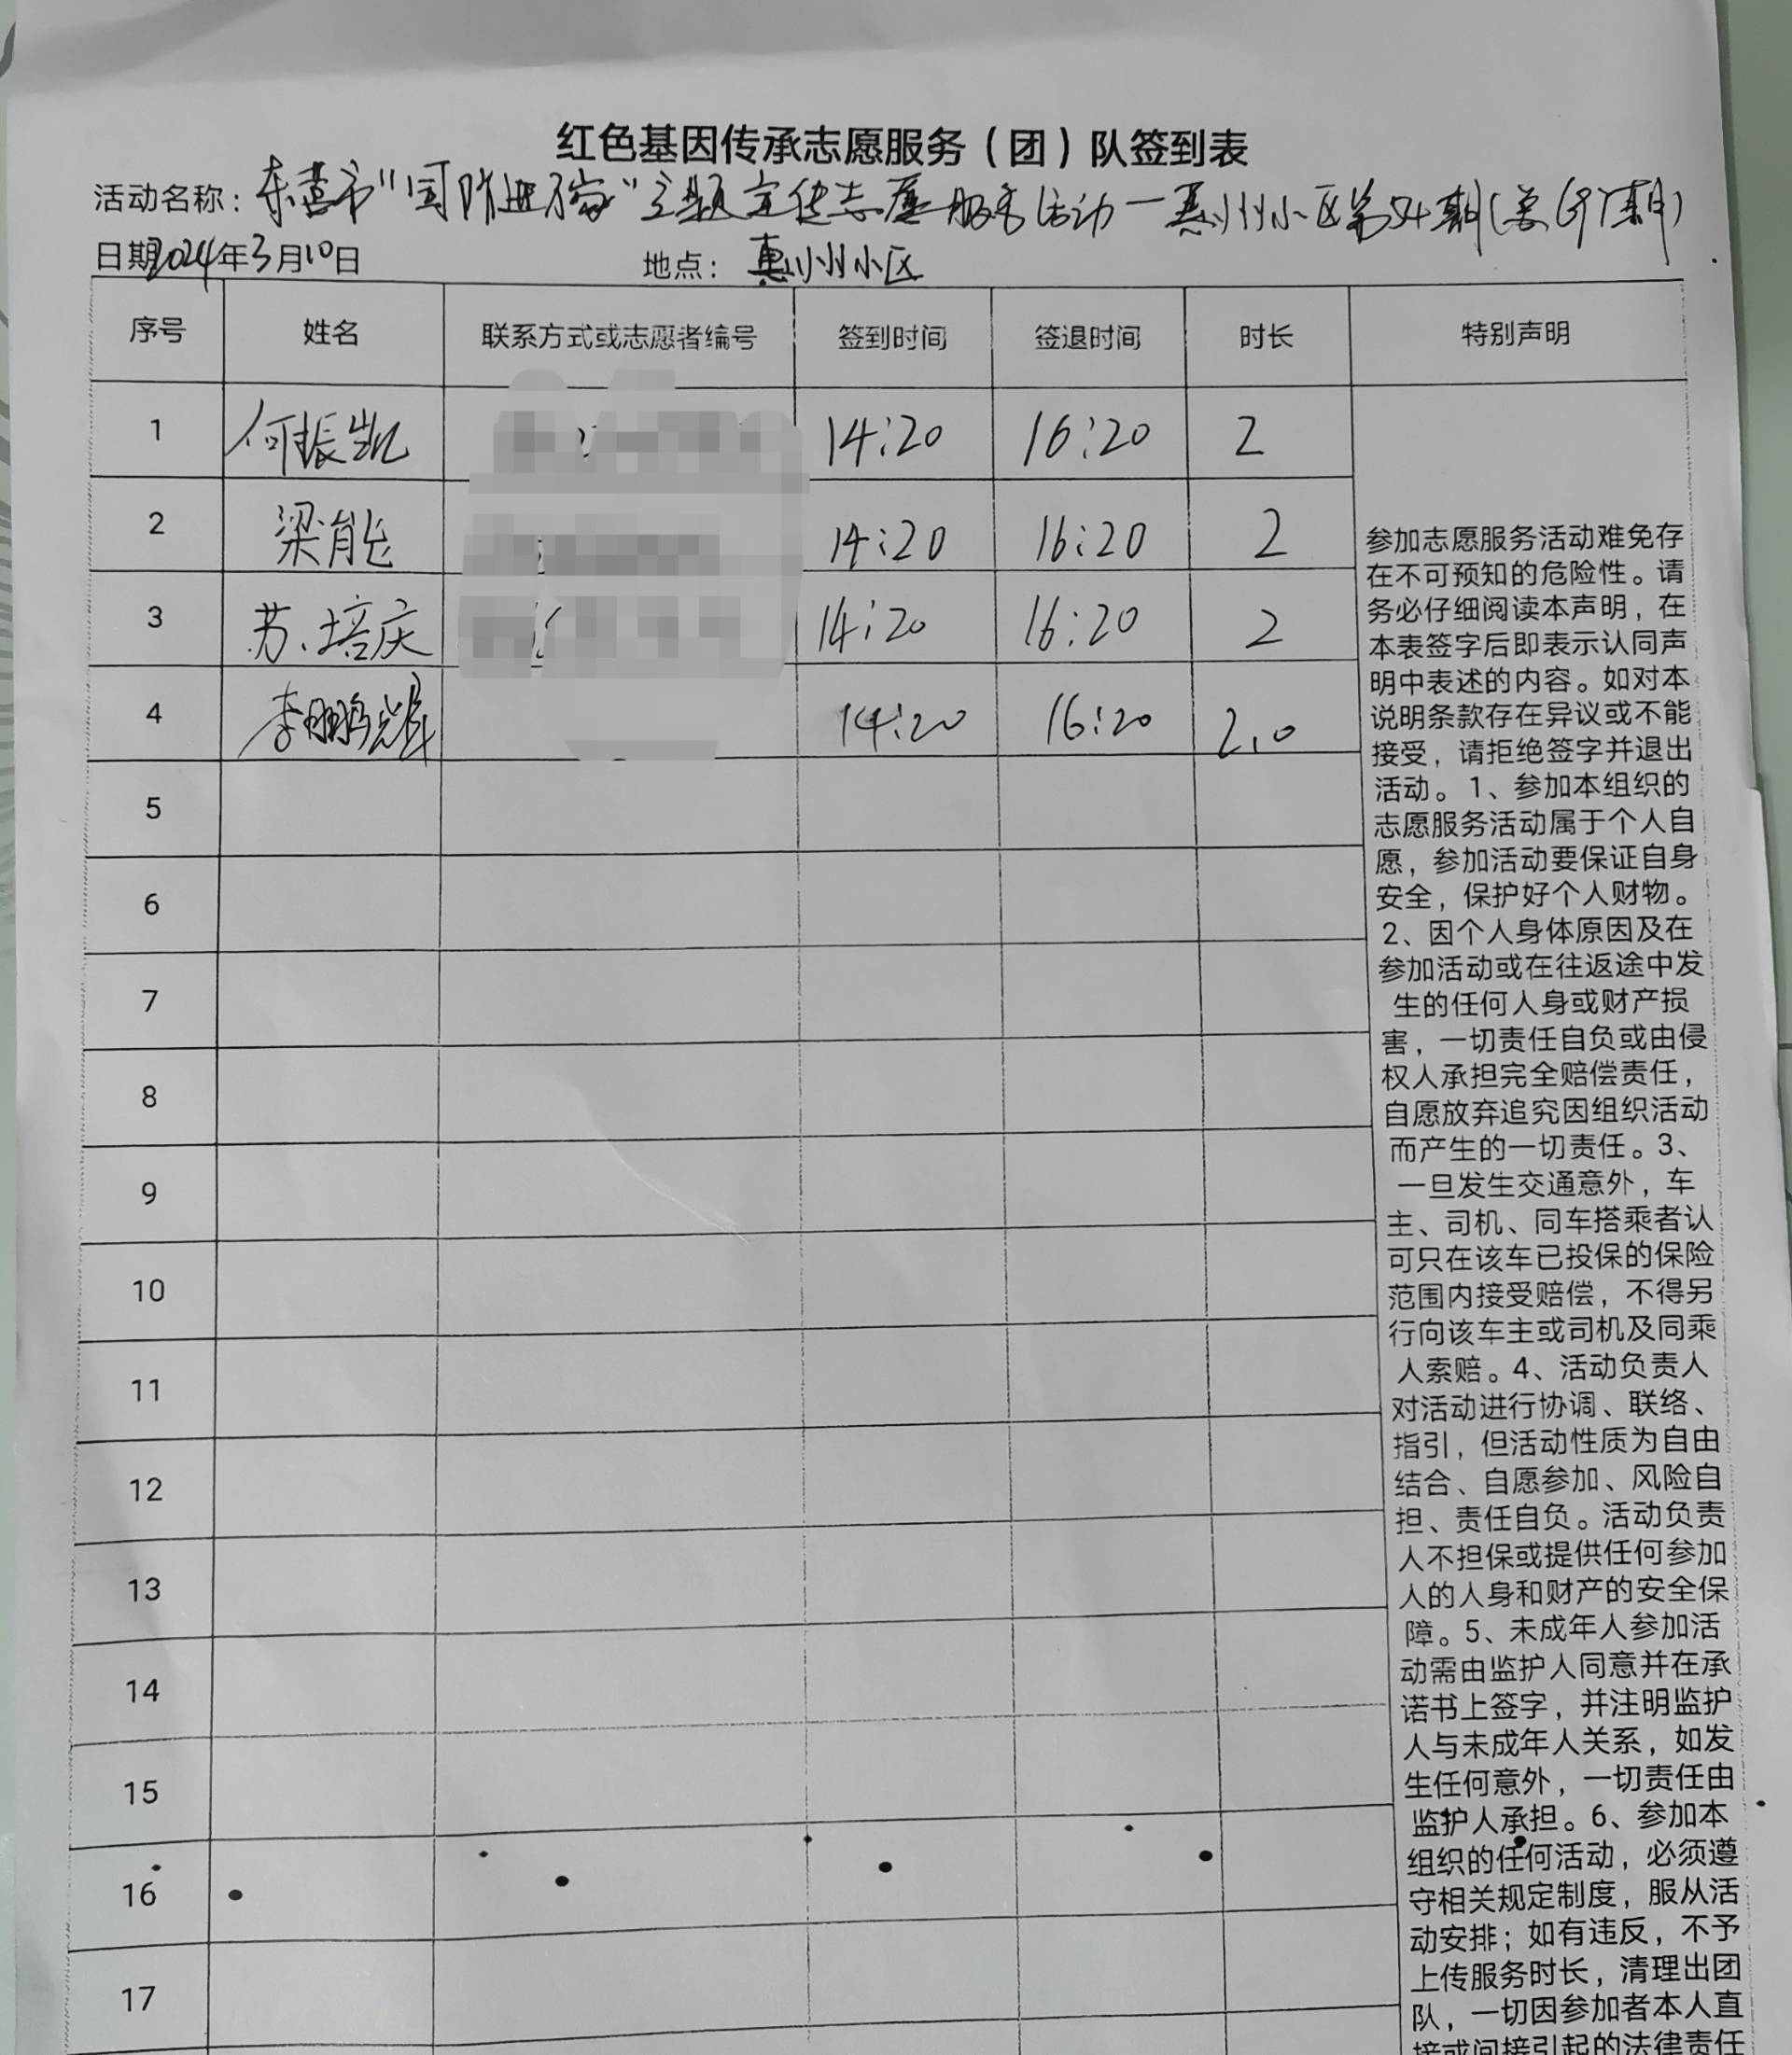 红色基因传承志愿服务（团）队签到表
活动名称：东营市“国防进万家”主题宣传志愿服务活动—惠州小区第54期(总 期)
日期2024年3月10日 地点：惠州小区
序号 姓名 联系方式或志愿者编号 签到时间 签退时间 时长 特别声明
1 何振凯 14:20 16:20 2
2 梁能 14:20 16:20 2
3 苏培庆 14:20 16:20 2
4 李鹏辉 14:20 16:20 2.0
5
6
7
8
9
10
11
12
13
14
15
16
17
参加志愿服务活动难免存
在不可预知的危险性。请
务必仔细阅读本声明，在
本表签字后即表示认同声
明中表述的内容。如对本
说明条款存在异议或不能
接受，请拒绝签字并退出
活动。1、参加本组织的
志愿服务活动属于个人自
愿，参加活动要保证自身
安全，保护好个人财物。
2、因个人身体原因及在
参加活动或在往返途中发
生的任何人身或财产损
害，一切责任自负或由侵
权人承担完全赔偿责任，
自愿放弃追究因组织活动
而产生的一切责任。3、
一旦发生交通意外，车
主、司机、同车搭乘者认
可只在该车已投保的保险
范围内接受赔偿，不得另
行向该车主或司机及同乘
人索赔。4、活动负责人
对活动进行协调、联络、
指引，但活动性质为自由
结合、自愿参加、风险自
担、责任自负。活动负责
人不担保或提供任何参加
人的人身和财产的安全保
障。5、未成年人参加活
动需由监护人同意并在承
诺书上签字，并注明监护
人与未成年人关系，如发
生任何意外，一切责任由
监护人承担。6、参加本
组织的任何活动，必须遵
守相关规定制度，服从活
动安排；如有违反，不予
上传服务时长，清理出团
队，一切因参加者本人直
接或间接引起的法律责任